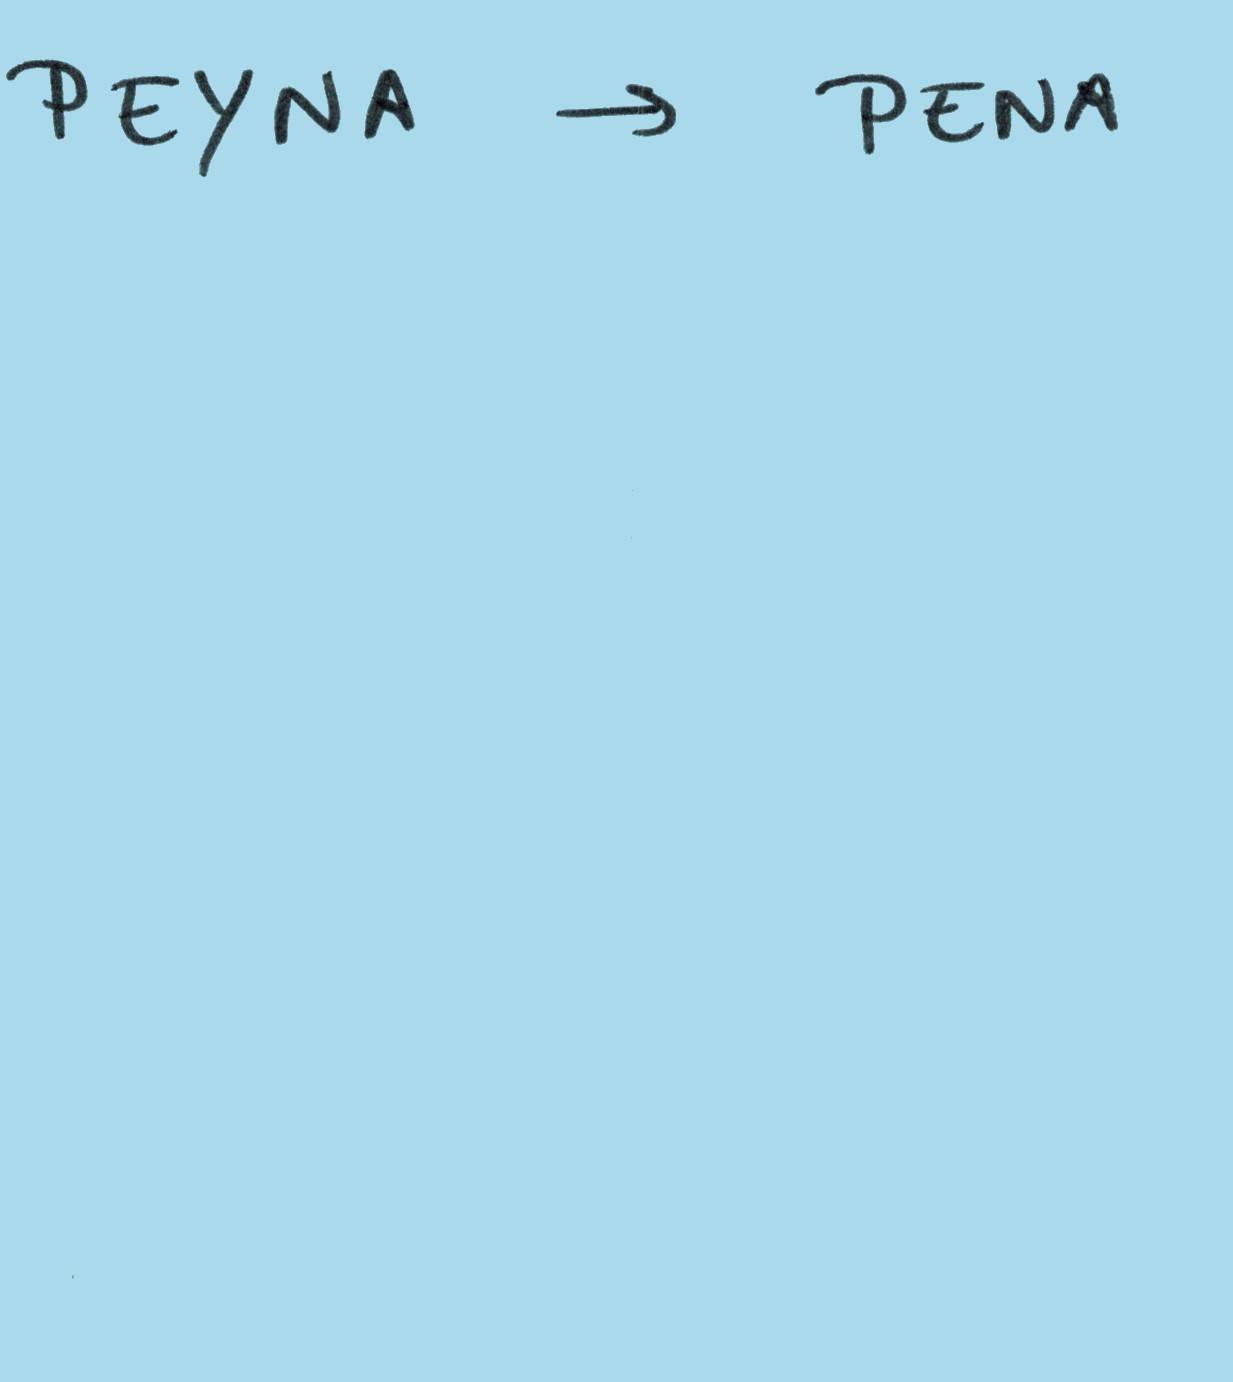 PEYNA → PENA